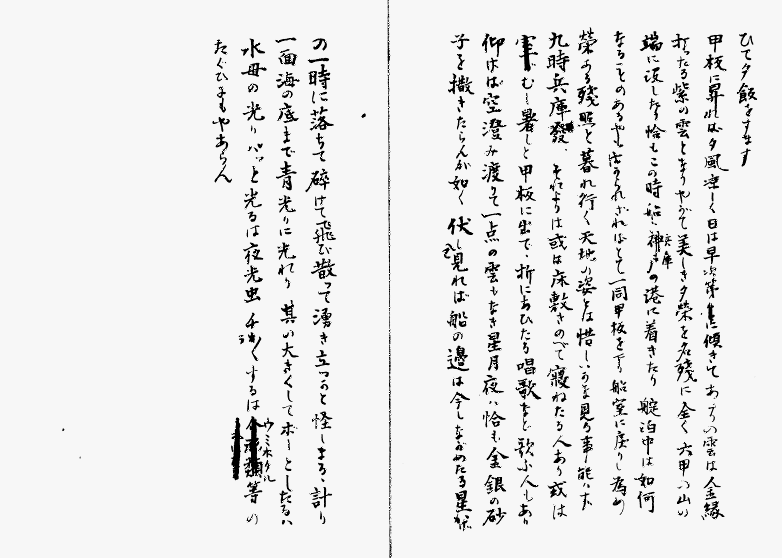 ひて夕飯をすます
甲板に昇れば夕風涼しく日は早次第に傾きてあたりの雲は金縁
打ちたる紫の雲とまりやがて美しき夕榮を名殘に全く六甲の山の
端に没しなり恰もこの時船は兵庫の港に着きたり碇泊中は如何
なることのあるやも
とて一同甲板を下り船室に戻りし為め
榮ある殘照と暮れ行く天地の姿とは惜しいかな見る事能はず
九時兵庫發、それよりは或は床敷きのべて寢ねたる人あり或は
むし暑しと甲板に出で、折にあひたる唱歌など歌ふ人もあり
仰げば空澄み渡りて一点の雲もなき星月夜は恰も金銀の砂
子を撒きたらんが如く伏し見れば船の邊は今しながめたる星が
の一時に落ちて碎けて飛び散って湧き立つかと怪しまるゝ計り
一面海の底まで青光りに光れり其の大きくしてボーとしたるは
水母の光りパッと光るは夜光虫チラチラするはウミホタル等の
たぐひにもやあらん